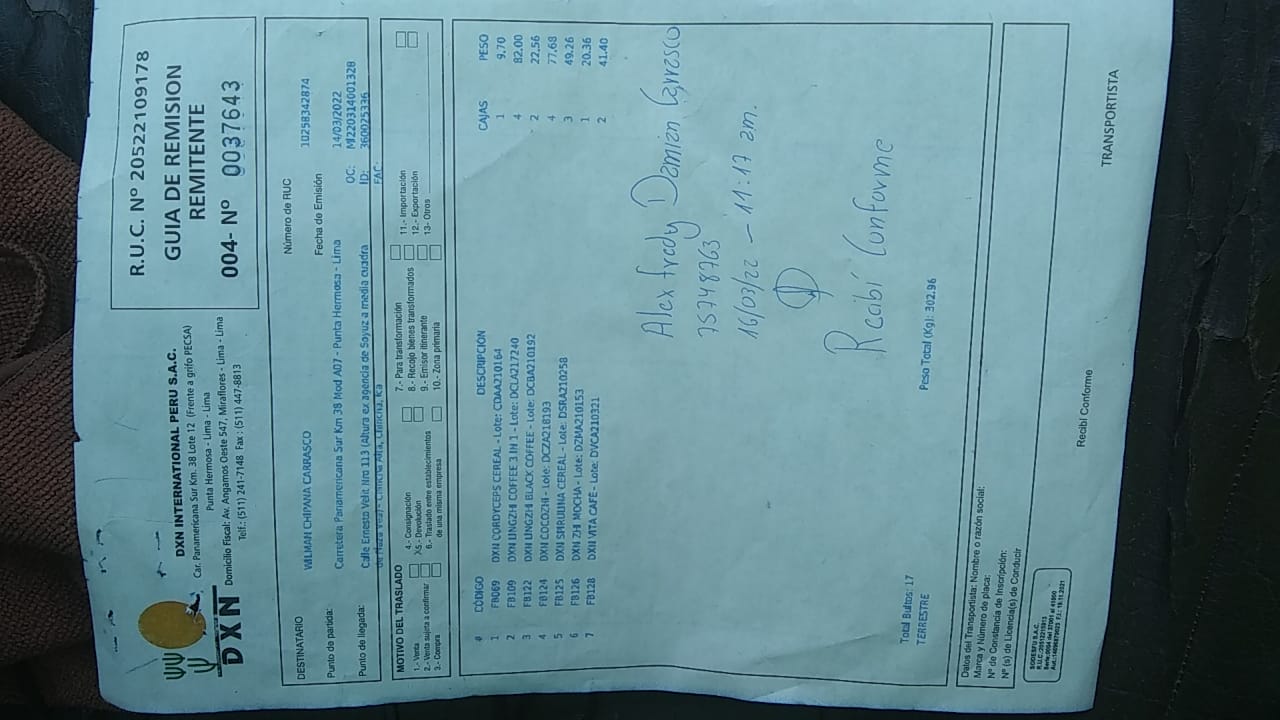 DXN
DXN INTERNATIONAL PERU S.A.C.
Car. Panamericana Sur Km. 38 Lote 12 (Frente a grifo PECSA)
Punta Hermosa - Lima - Lima
Domicilio Fiscal: Av. Angamos Oeste 547, Miraflores - Lima - Lima
Telf.: (511) 241-7148 Fax : (511) 447-8813
R.U.C. Nº 20522109178
GUIA DE REMISION
REMITENTE
004- Nº 0037643
DESTINATARIO WILMAN CHIPANA CARRASCO Número de RUC 10258342874
Fecha de Emisión 14/03/2022
Punto de partida: Carretera Panamericana Sur Km 38 Mod A07 - Punta Hermosa - Lima OC: M220314001328
Punto de llegada: Calle Ernesto Velit Nro 113 (Altura ex agencia de Soyuz a media cuadra ID: 360025336
FAC:
MOTIVO DEL TRASLADO
1.- Venta 4.- Consignación 7.- Para transformación 11.- Importación
2.- Venta sujeta a confirmar X5.- Devolución 8.- Recojo bienes transformados 12.- Exportación
3.- Compra 6.- Traslado entre establecimientos de una misma empresa 9.- Emisor itinerante 13- Otros
10.- Zona primaria
# CÓDIGO DESCRIPCIÓN CAJAS PESO
1 FB069 DXN CORDYCEPS CEREAL - Lote: CDAA210164 1 9.70
2 FB109 DXN LINGZHI COFFEE 3 IN 1 - Lote: DCLA217240 4 82.00
3 FB122 DXN LINGZHI BLACK COFFEE - Lote: DCBA210192 2 22.56
4 FB124 DXN COCOZHI - Lote: DCZA218193 4 77.68
5 FB125 DXN SPIRULINA CEREAL - Lote: DSRA210258 3 49.26
6 FB126 DXN ZHI MOCHA - Lote: DZMA210153 1 20.36
7 FB128 DXN VITA CAFÉ - Lote: DVCA210321 2 41.40
Alex Fredy Damian Carrasco
75748763
16/03/22 - 11:17 am.
Rcibí Conforme
Total Bultos: 17 Peso Total (Kg): 302.96
TERRESTRE
Datos del Transportista: Nombre o razón social:
Marca y Número de placa:
Nº de Constancia de Inscripción:
Nº (s) de Licencia(s) de Conducir
Recibí Conforme
TRANSPORTISTA